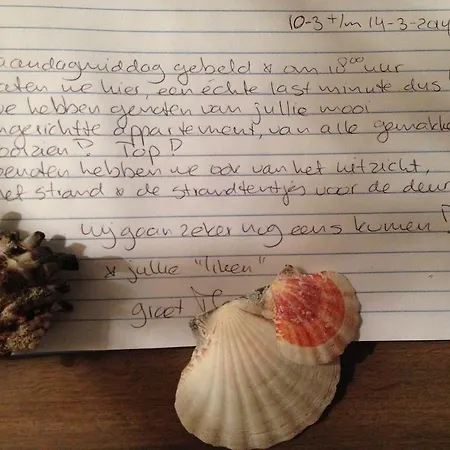 10-3 t/m 14-3-2014
maandagmiddag gebeld & om 18⁰⁰ uur
zaten we hier, een échte last minute dus
we hebben genoten van jullie mooi
ingerichtte appartement, van alle gemakken
voorzien! Top!
genoten hebben we ook van het uitzicht,
het strand & de strandtentjes voor de deur
wij gaan zeker nog eens komen!
& jullie "liken"
groet